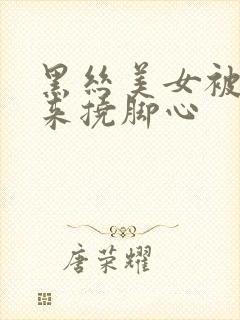 黑丝美女被
来挠脚心
唐荣耀